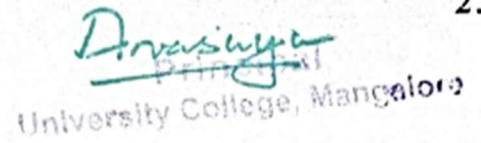 2.
Principal
University College, Mangalore